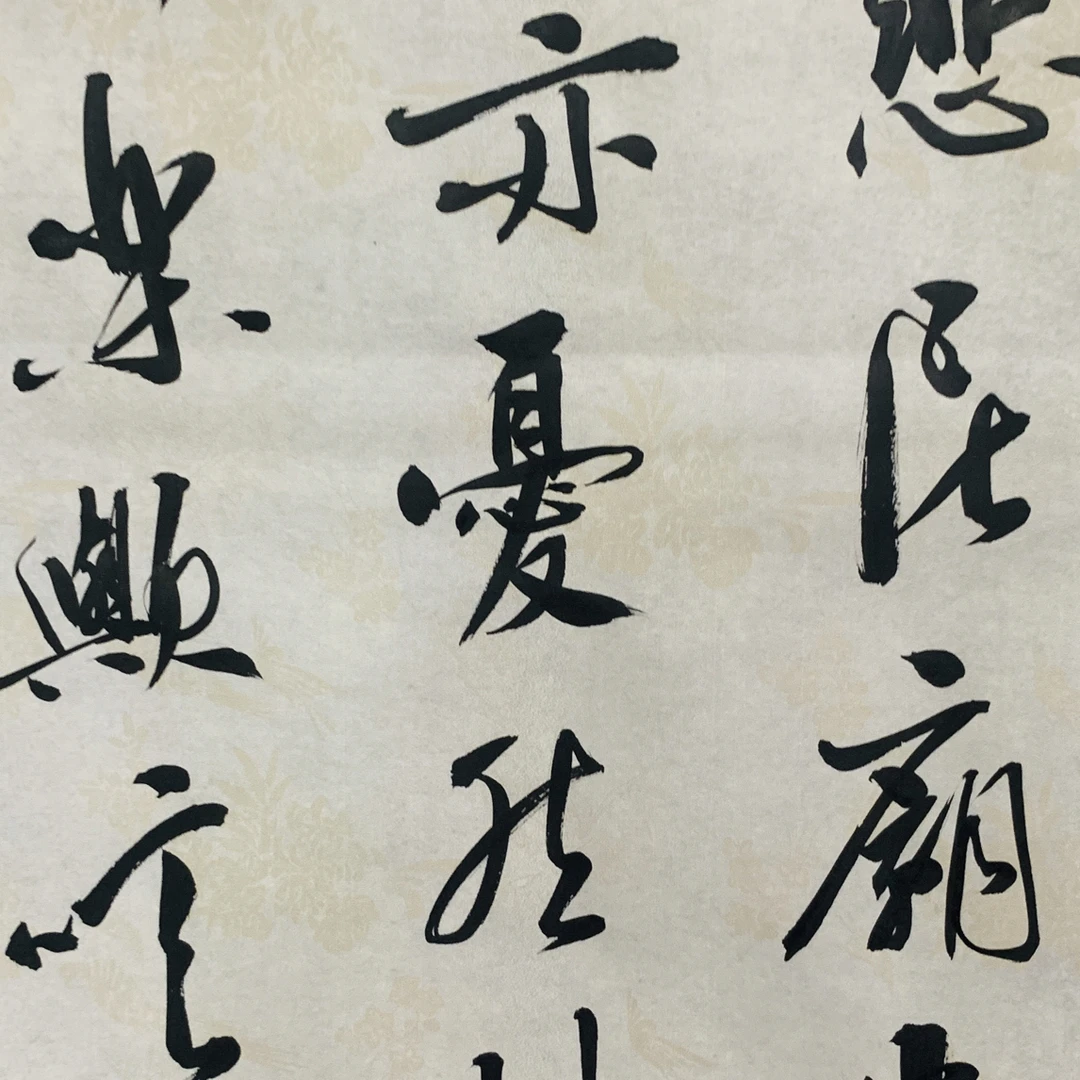 悲居廟
亦憂然
樂歟噫